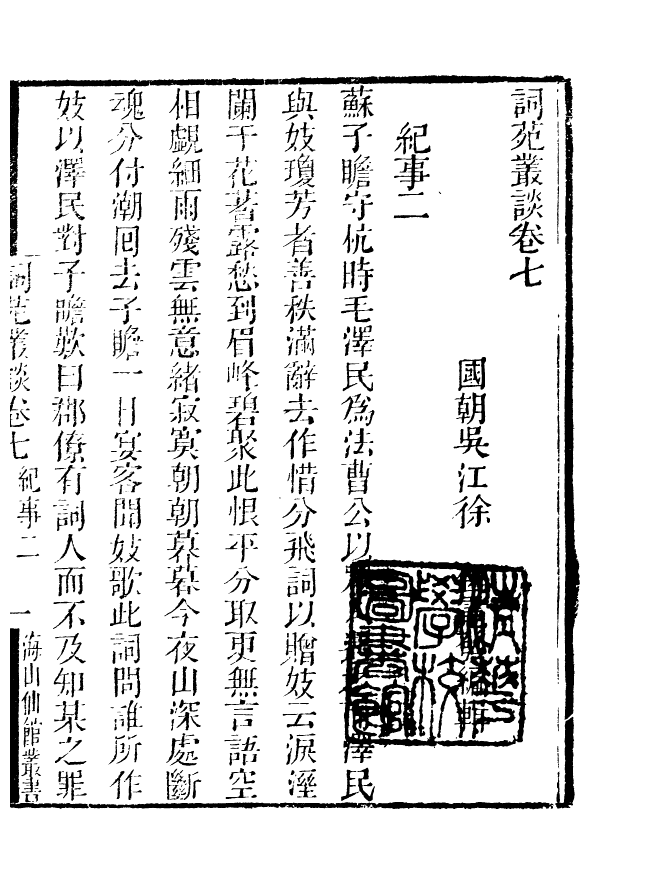 詞苑叢談卷七
國朝吳江徐 編輯
清華學校圖書館
紀事二
蘇子瞻守杭時毛澤民爲法曹公以 澤民
與妓瓊芳者善秩滿辭去作惜分飛詞以贈妓云淚溼
闌干花著露愁到眉峰碧聚此恨平分取更無言語空
相覷細雨殘雲無意緒寂寞朝朝暮暮今夜山深處斷
魂分付潮囘去子瞻一日宴客聞妓歌此詞問誰所作
妓以澤民對子瞻歎曰郡僚有詞人而不及知某之罪
詞苑叢談卷七 紀事二 一 海山仙館叢書